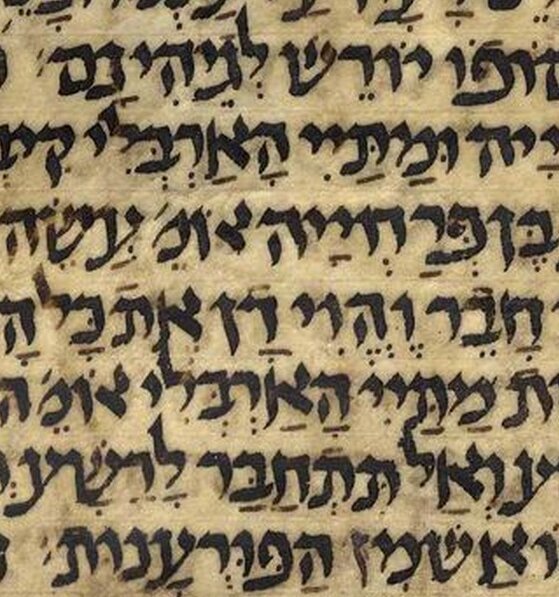 סופו יורש לגיהינם
ייה ומתיי הארבלי קיב
בן פרחייה אומ׳ עשה
חבר והוי דן את כל ה
ת מתיי הארבלי אומ׳ ה
ע ואל תתחבר לרשע ו
ואש מן הפורענות